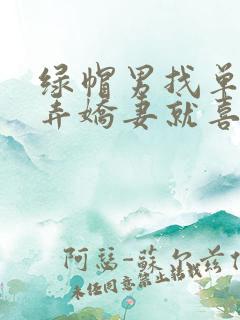 绿帽男找单
弄嬌妻就喜
阿瑟-蘇尔兹
未经同意禁止转载